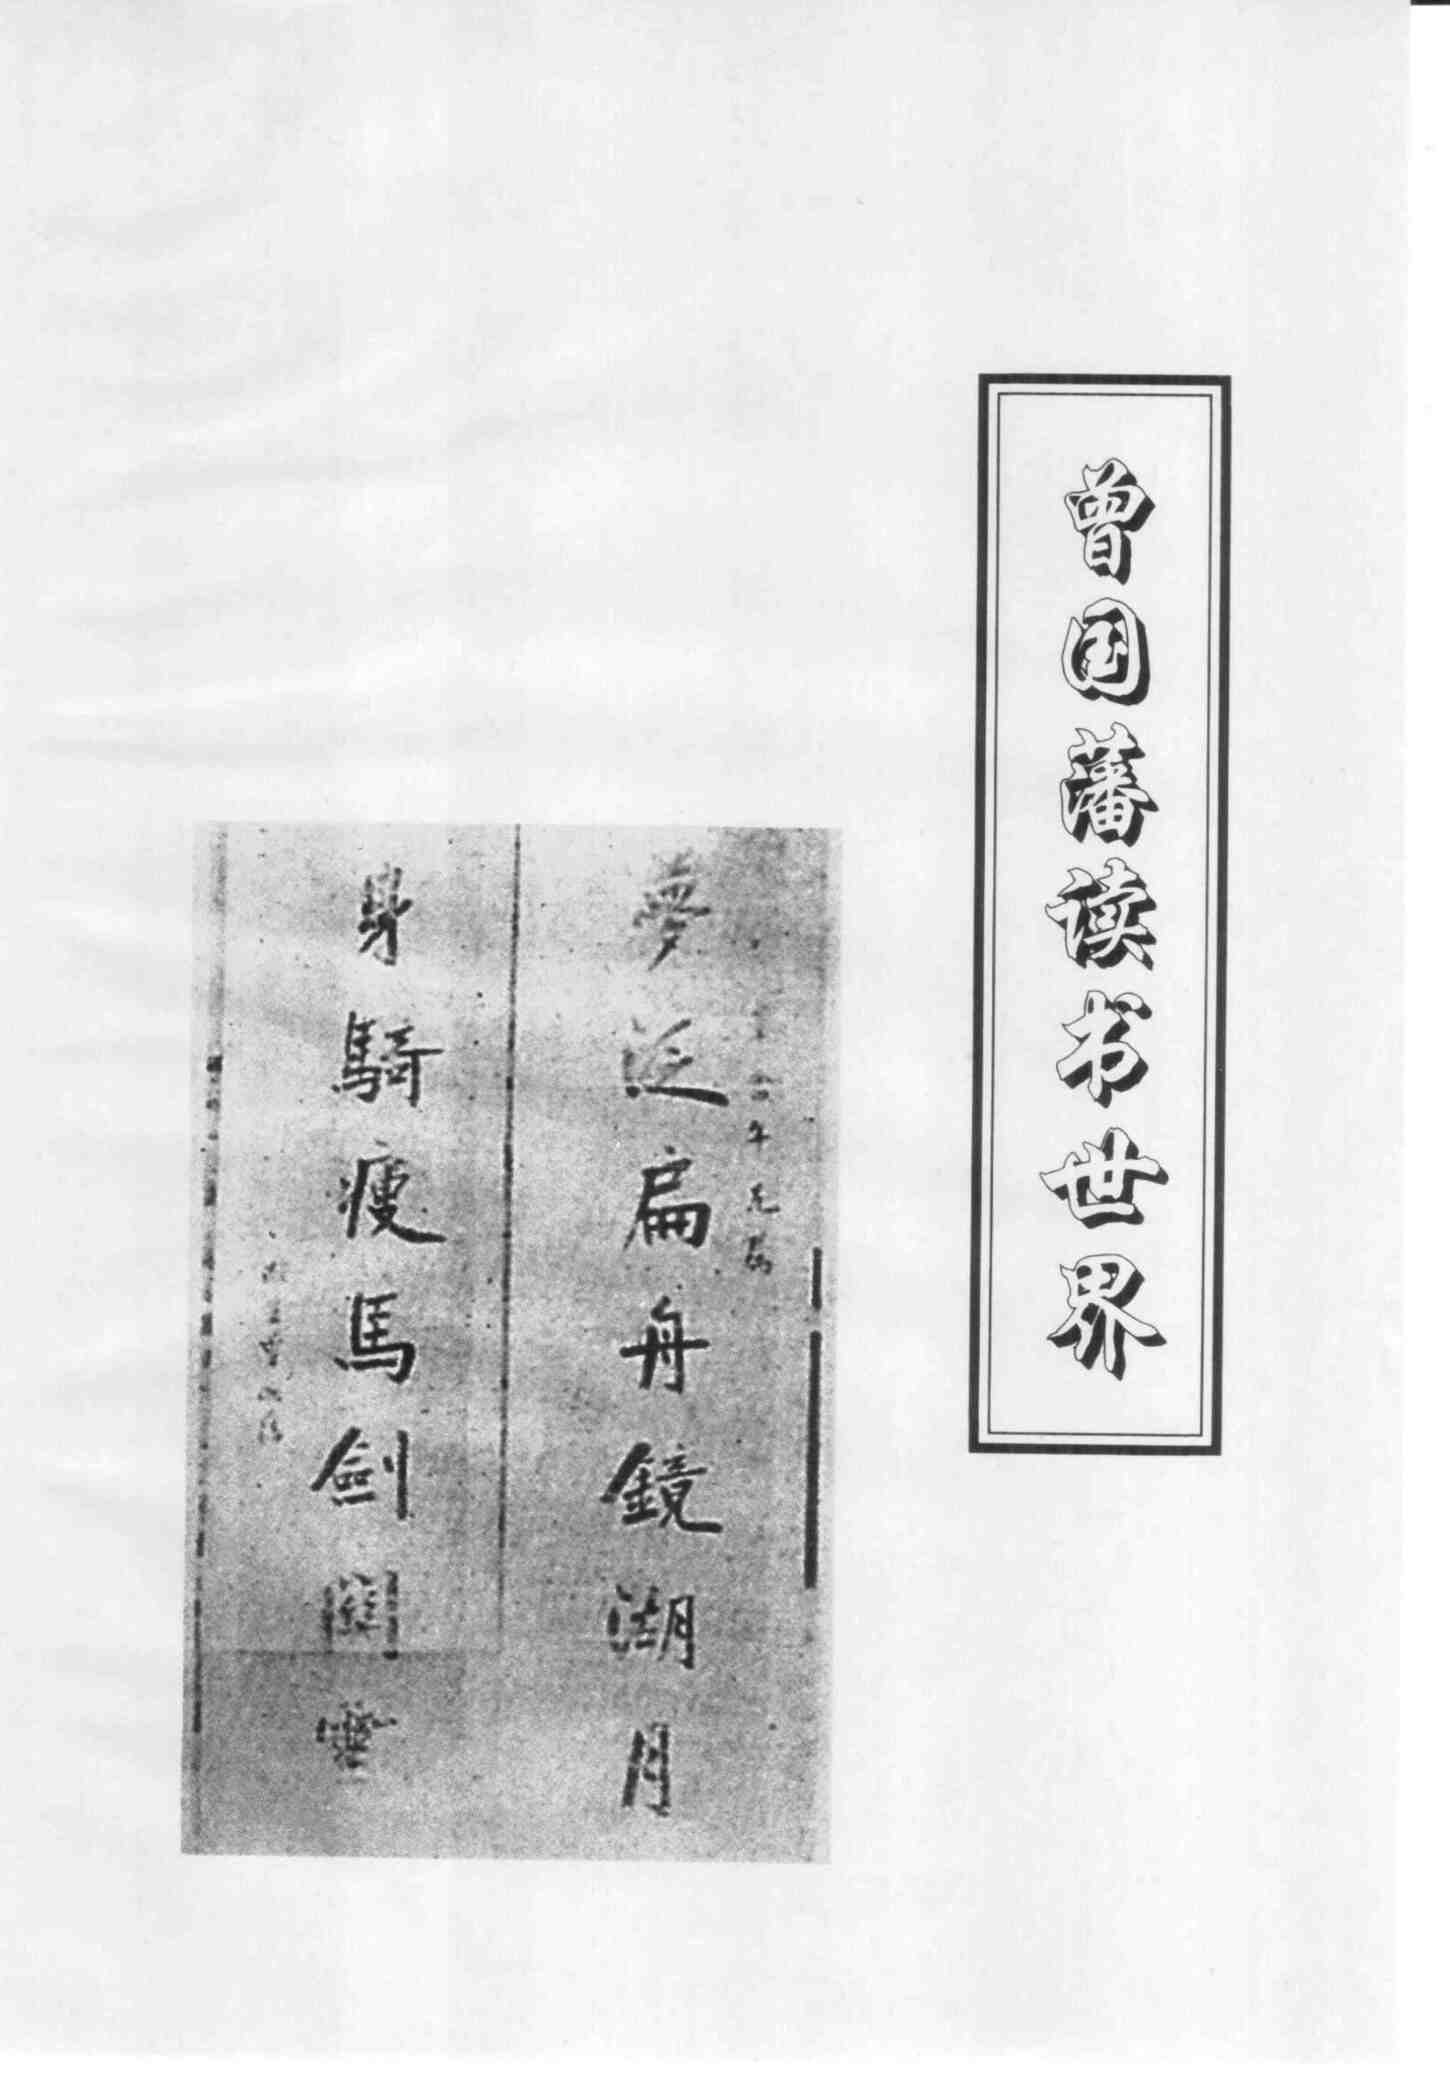 曾国藩读书世界
夢泛扁舟鏡湖月
身騎瘦馬劍關雲